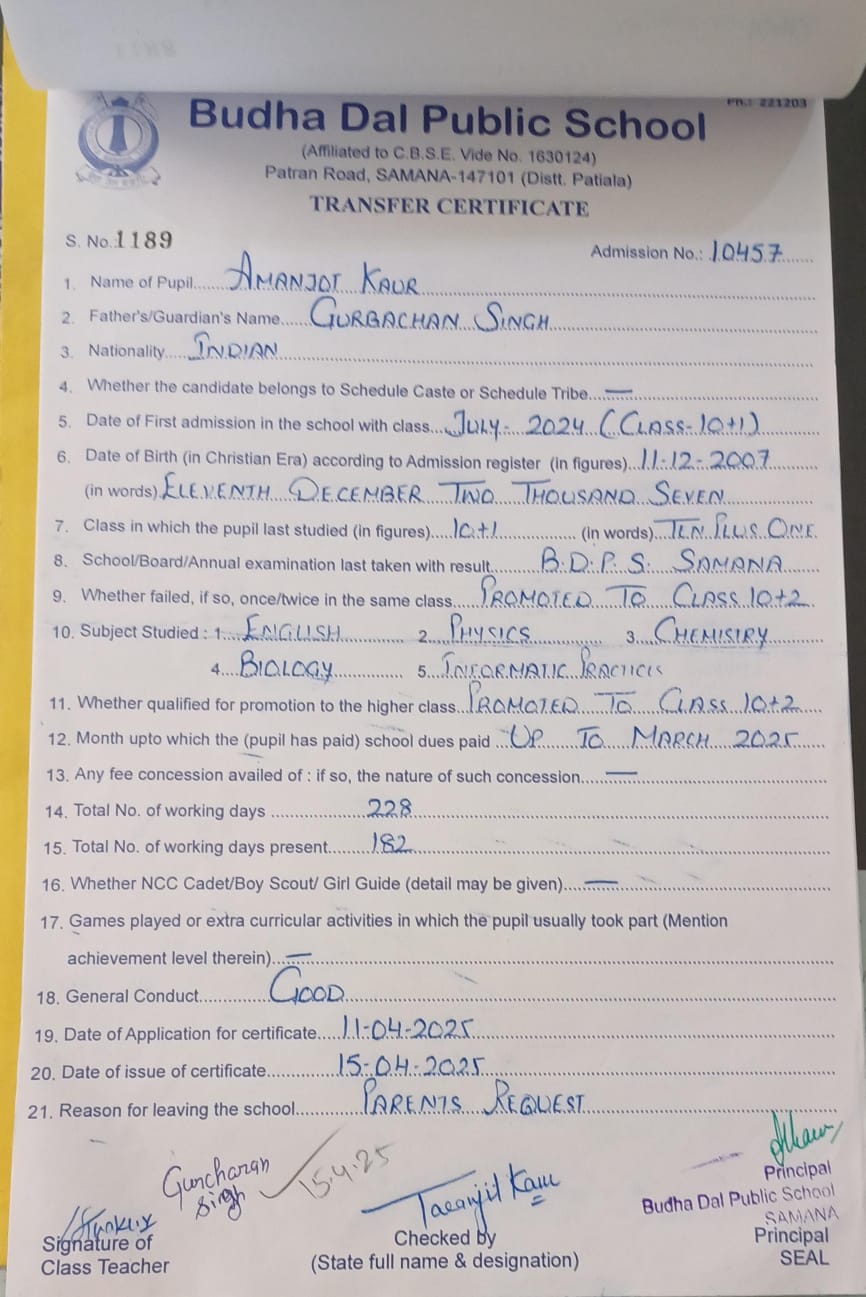 Ph.: 221203
Budha Dal Public School
(Affiliated to C.B.S.E. Vide No. 1630124)
Patran Road, SAMANA-147101 (Distt. Patiala)
TRANSFER CERTIFICATE
S. No. 1189
Admission No.: 10457
1. Name of Pupil AMANJOT KAUR
2. Father's/Guardian's Name GURBACHAN SINGH
3. Nationality INDIAN
4. Whether the candidate belongs to Schedule Caste or Schedule Tribe —
5. Date of First admission in the school with class JULY- 2024 (CLASS-10+1)
6. Date of Birth (in Christian Era) according to Admission register (in figures) 11-12-2007
(in words) ELEVENTH DECEMBER TWO THOUSAND SEVEN
7. Class in which the pupil last studied (in figures) 10+1 (in words) TEN PLUS ONE
8. School/Board/Annual examination last taken with result B.D.P.S. SAMANA
9. Whether failed, if so, once/twice in the same class PROMOTED TO CLASS 10+2
10. Subject Studied : 1. ENGLISH 2. PHYSICS 3. CHEMISTRY
4. BIOLOGY 5. INFORMATIC PRACTICES
11. Whether qualified for promotion to the higher class PROMOTED TO CLASS 10+2
12. Month upto which the (pupil has paid) school dues paid UP TO MARCH 2025
13. Any fee concession availed of : if so, the nature of such concession —
14. Total No. of working days 228
15. Total No. of working days present 182
16. Whether NCC Cadet/Boy Scout/ Girl Guide (detail may be given) —
17. Games played or extra curricular activities in which the pupil usually took part (Mention
achievement level therein) —
18. General Conduct GOOD
19. Date of Application for certificate 11-04-2025
20. Date of issue of certificate 15-04-2025
21. Reason for leaving the school PARENTS REQUEST
Gurcharan
Singh
15.4.25
Taranjit Kaur
Principal
Budha Dal Public School
SAMANA
Signature of
Class Teacher
Checked by
(State full name & designation)
Principal
SEAL